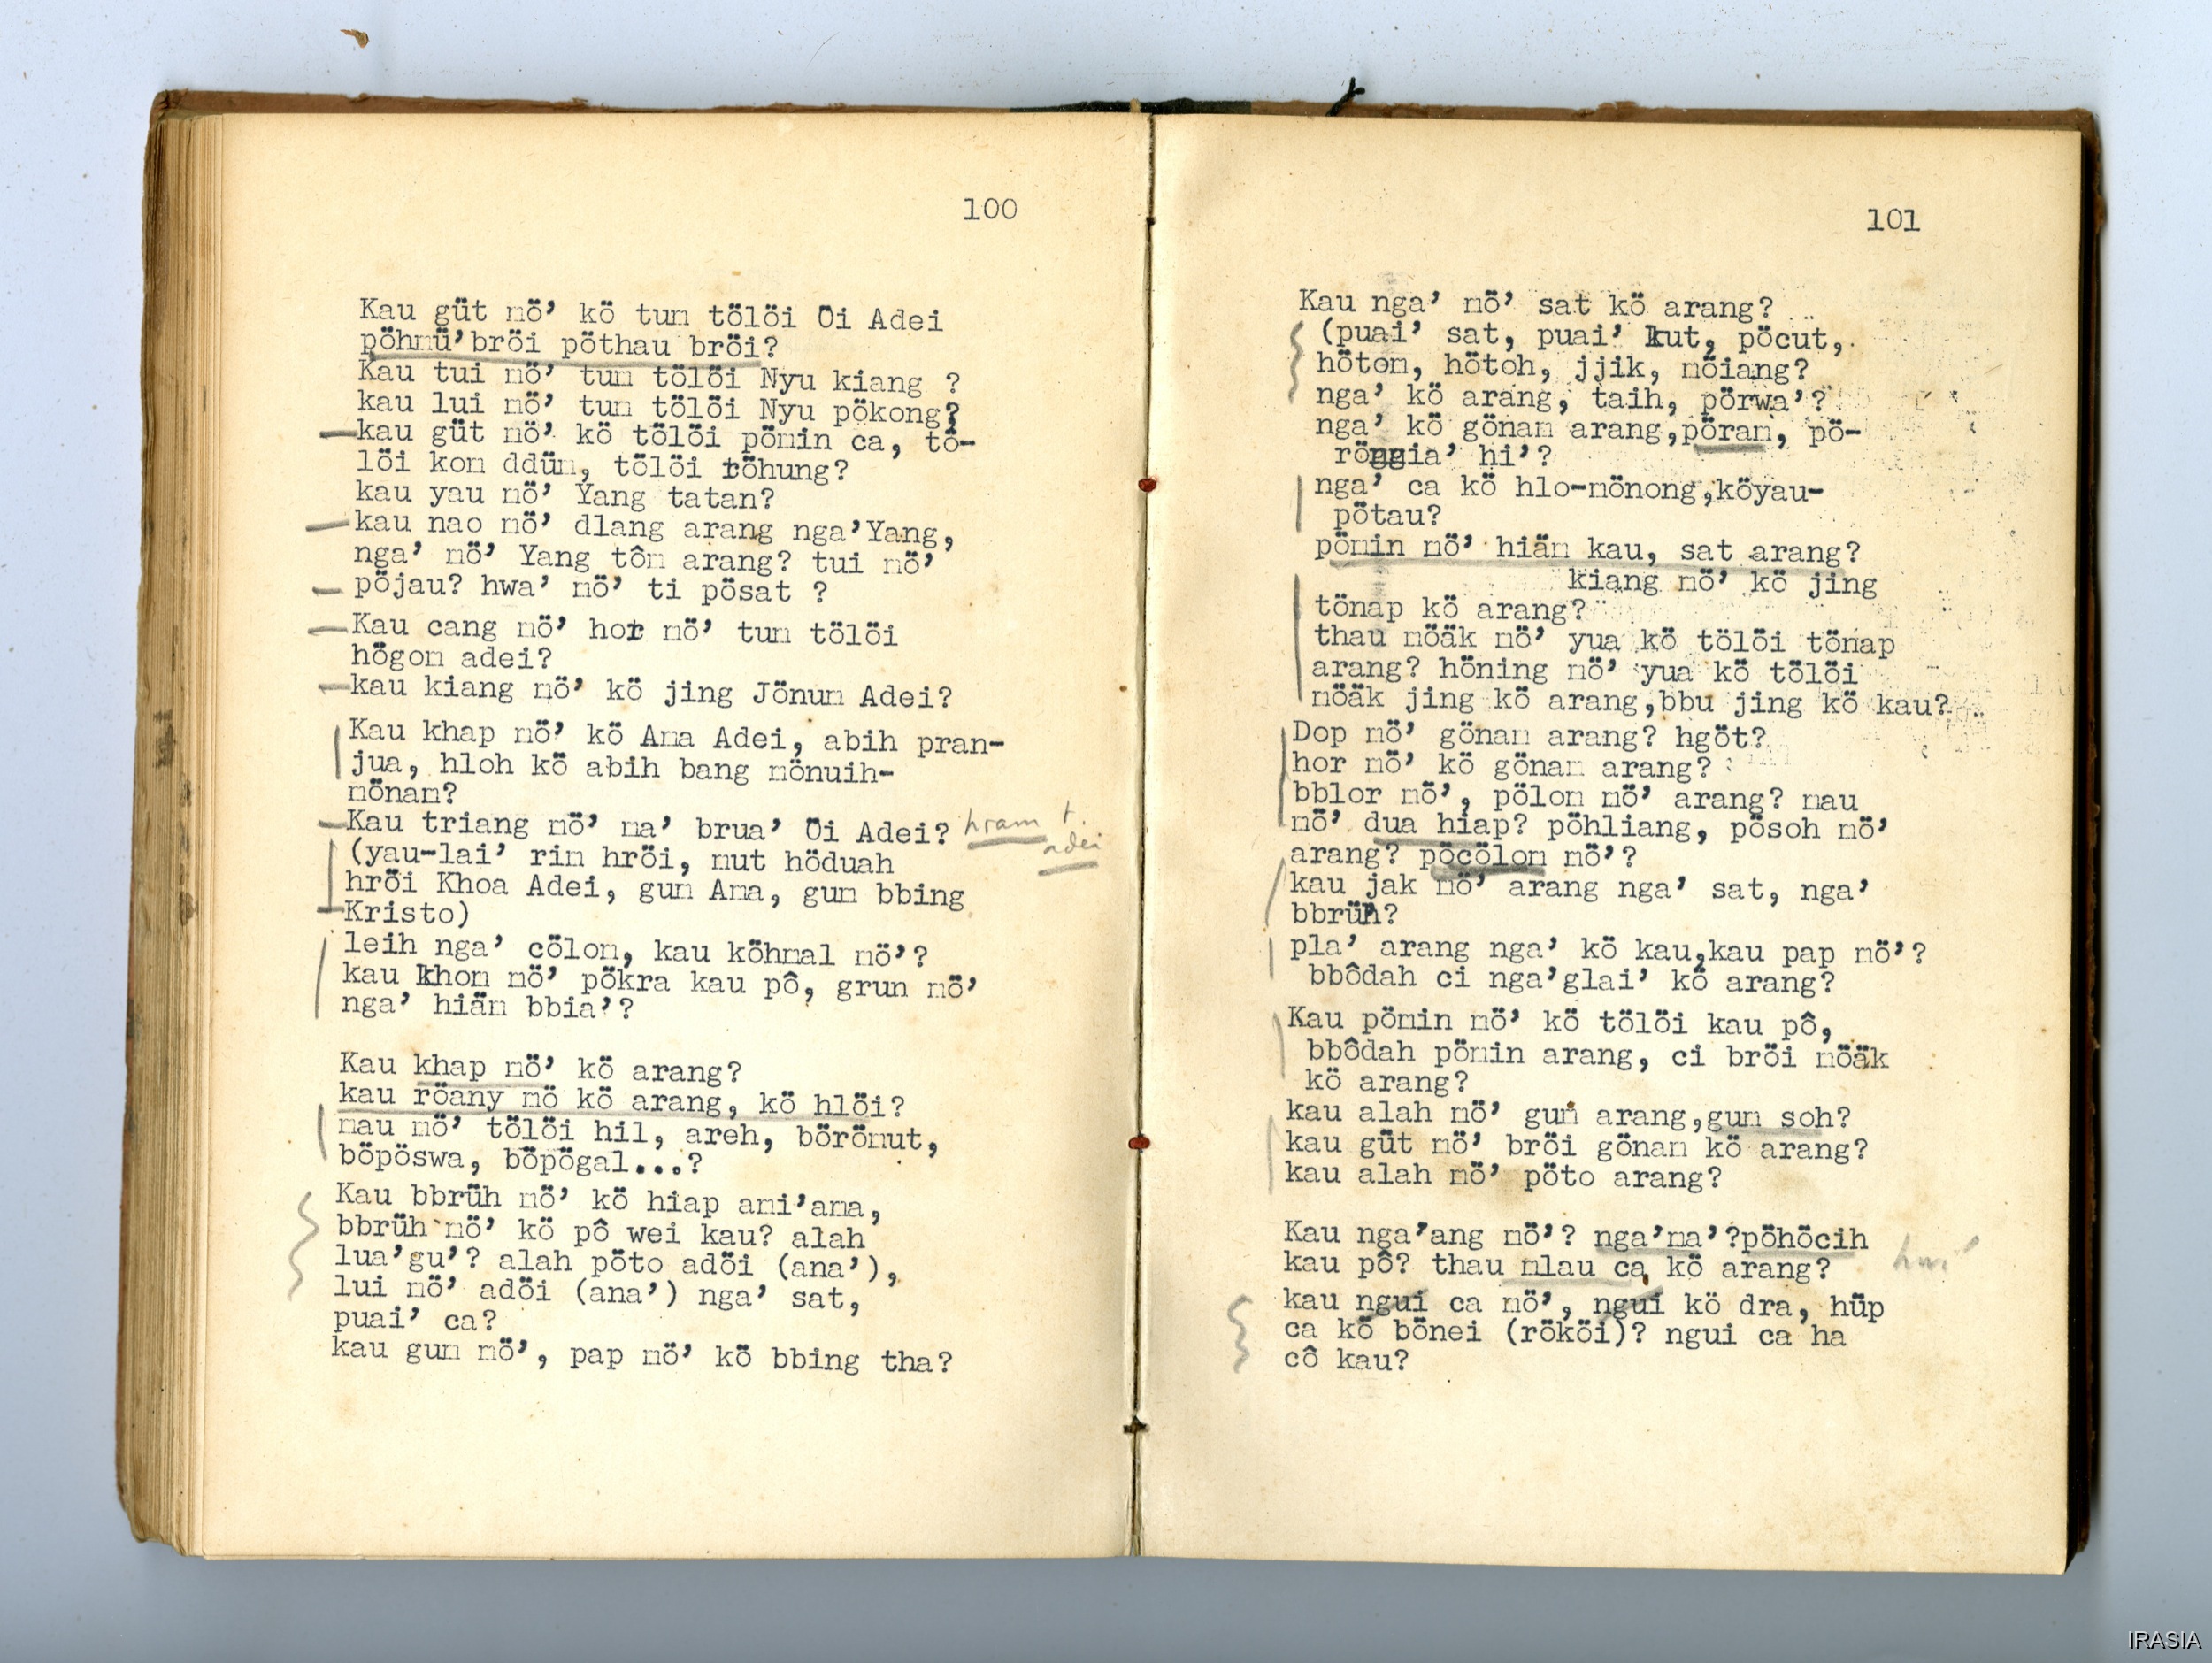 100
Kau güt mö’ kö tum tölöi Oi Adei
pöhmü’bröi pöthau bröi?
Kau tui mö’ tum tölöi Nyu kiang ?
kau lui mö’ tum tölöi Nyu pökong?
kau güt mö’ kö tölöi pömin ca, tö-
löi kom ddüm, tölöi röhung?
kau yau mö’ Yang tatan?
kau nao mö’ dlang arang nga’Yang,
nga’ mö’ Yang tôm arang? tui mö’
pöjau? hwa’ mö’ ti pösat ?
Kau cang mö’ hor mö’ tum tölöi
högom adei?
kau kiang mö’ kö jing Jönum Adei?
Kau khap mö’ kö Ama Adei, abih pran-
jua, hloh kö abih bang mönuih-
mönam?
Kau triang mö’ ma’ brua’ Oi Adei? hram t.
adei
(yau-lai’ rim hröi, mut höduah
hröi Khoa Adei, gum Ama, gum bbing
Kristo)
leih nga’ cölom, kau köhmal mö’?
kau khom mö’ pökra kau pô, grun mö’
nga’ hiäm bbia’?
Kau khap mö’ kö arang?
kau röany mö kö arang, kö hlöi?
mau mö’ tölöi hil, areh, börömut,
böpöswa, böpögal...?
Kau bbrüh mö’ kö hiap ami’ama,
bbrüh mö’ kö pô wei kau? alah
lua’gu’? alah pöto adöi (ana’),
lui mö’ adöi (ana’) nga’ sat,
puai’ ca?
kau gum mö’, pap mö’ kö bbing tha?
101
Kau nga’ mö’ sat kö arang?
(puai’ sat, puai’ kut, pöcut,
hötom, hötoh, jjik, möiang?
nga’ kö arang, taih, pörwa’?
nga’ kö gönam arang,pöram, pö-
rönggia’ hi’?
nga’ ca kö hlo-mönong,köyau-
pötau?
pömin mö’ hiäm kau, sat arang?
kiang mö’ kö jing
tönap kö arang?
thau möäk mö’ yua kö tölöi tönap
arang? höning mö’ yua kö tölöi
möäk jing kö arang,bbu jing kö kau?
Dop mö’ gönam arang? hgöt?
hor mö’ kö gönam arang?
bblor mö’, pölom mö’ arang? mau
mö’ dua hiap? pöhliang, pösoh mö’
arang? pöcölom mö’?
kau jak mö’ arang nga’ sat, nga’
bbrüh?
pla’ arang nga’ kö kau,kau pap mö’?
bbôdah ci nga’glai’ kö arang?
Kau pömin mö’ kö tölöi kau pô,
bbôdah pömin arang, ci bröi möäk
kö arang?
kau alah mö’ gum arang,gum soh?
kau güt mö’ bröi gönam kö arang?
kau alah mö’ pöto arang?
Kau nga’ang mö’? nga’ma’?pöhöcih
kau pô? thau mlau ca kö arang?
kau ngui ca mö’, ngui kö dra, hüp
ca kö bönei (rököi)? ngui ca ha
cô kau?
IRASIA